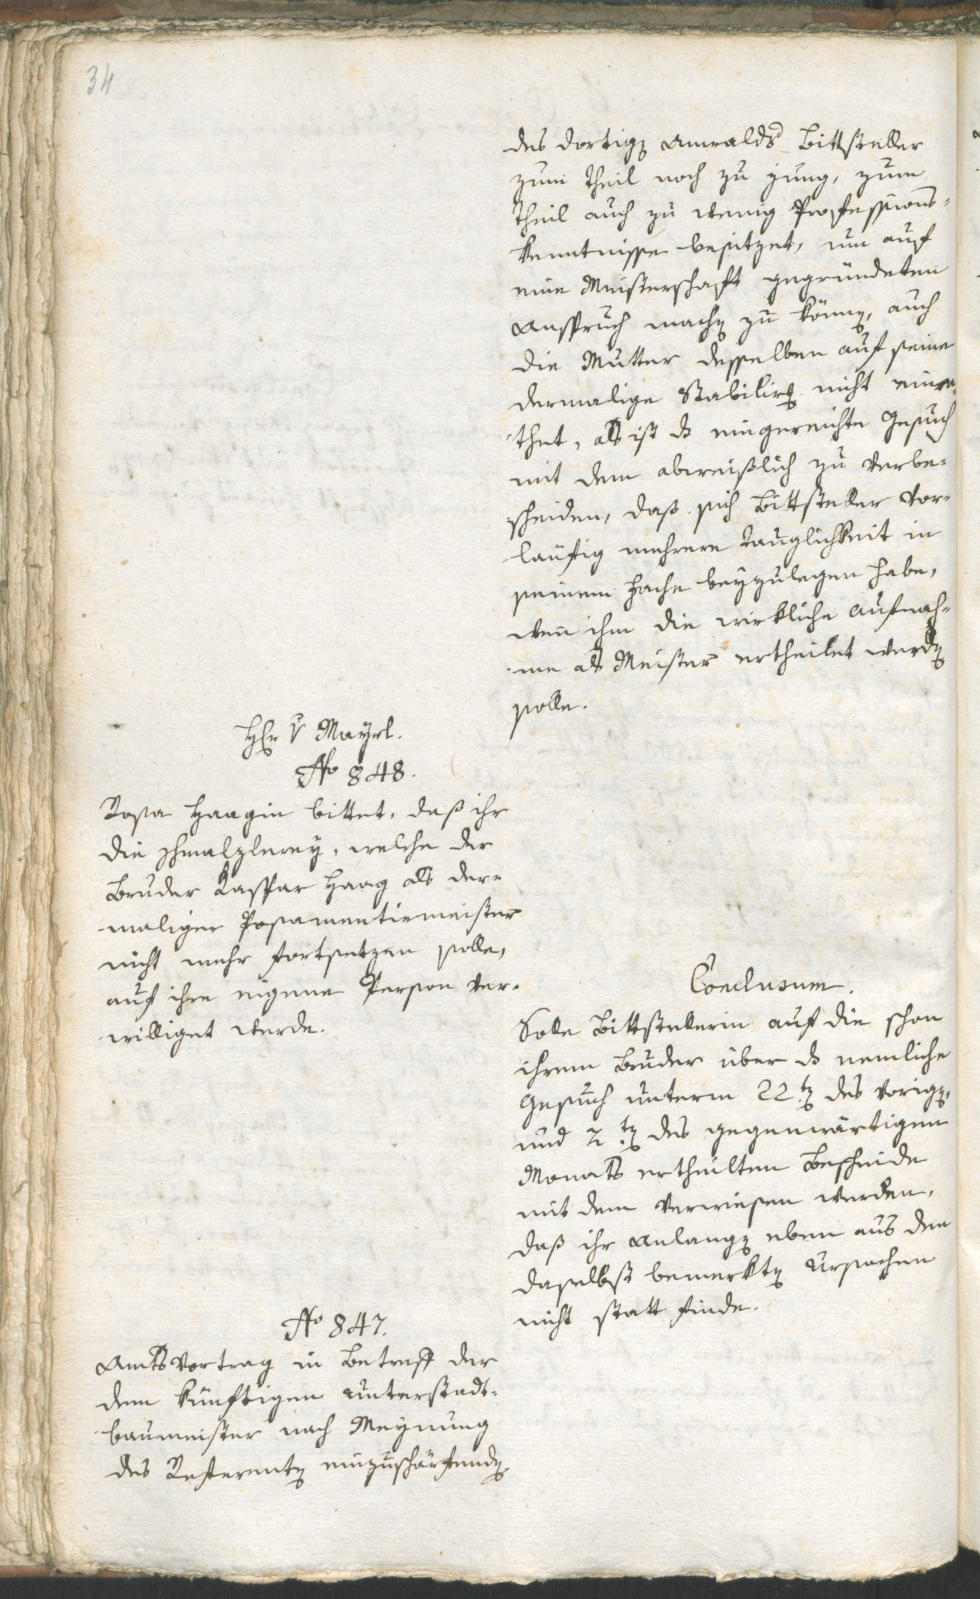 34
des dortigen Anwalds Bittsteller
zum Theil noch zu jung, zum
Theil auch zu wenig Professions-
kenntnisse besitzet, um auf
eine Meisterschaft gegründeten
Anspruch machen zu können, auch
die Mutter desselben auf seine
dermalige Stabilirg nicht einra-
thet, als ist ds eingereichte Gesuch
mit dem abweißlich zu verbe-
scheiden, daß sich Bittsteller vor-
läufig mehrere Tauglichkeit in
seinem Fache beyzulegen habe,
wenn ihm die wirkliche Aufnah-
me als Meister ertheilet werden
solle.
Hr v Mayrl.
No 848.
Rosa Haagin bittet, daß ihr
die Schmalzlerey, welche der
Bruder Kaspar Haag als der-
maliger Posamentiermeister
nicht mehr fortsetzen solle,
auf ihre eigene Person ver-
williget werde.
Conclusum.
Solle Bittstellerin auf die schon
ihrem Bruder über ds nemliche
Gesuch unterm 22ten des vorigen,
und 2ten des gegenwärtigen
Monats ertheilten Bescheide
mit dem verwiesen werden,
daß ihr Anlangen eben aus den
daselbst bemerkten Ursachen
nicht statt finde.
No 847.
Amtsvortrag in Betreff der
dem künftigen Unterstadt-
baumeister nach Meynung
des Referenten einzuschärfenden